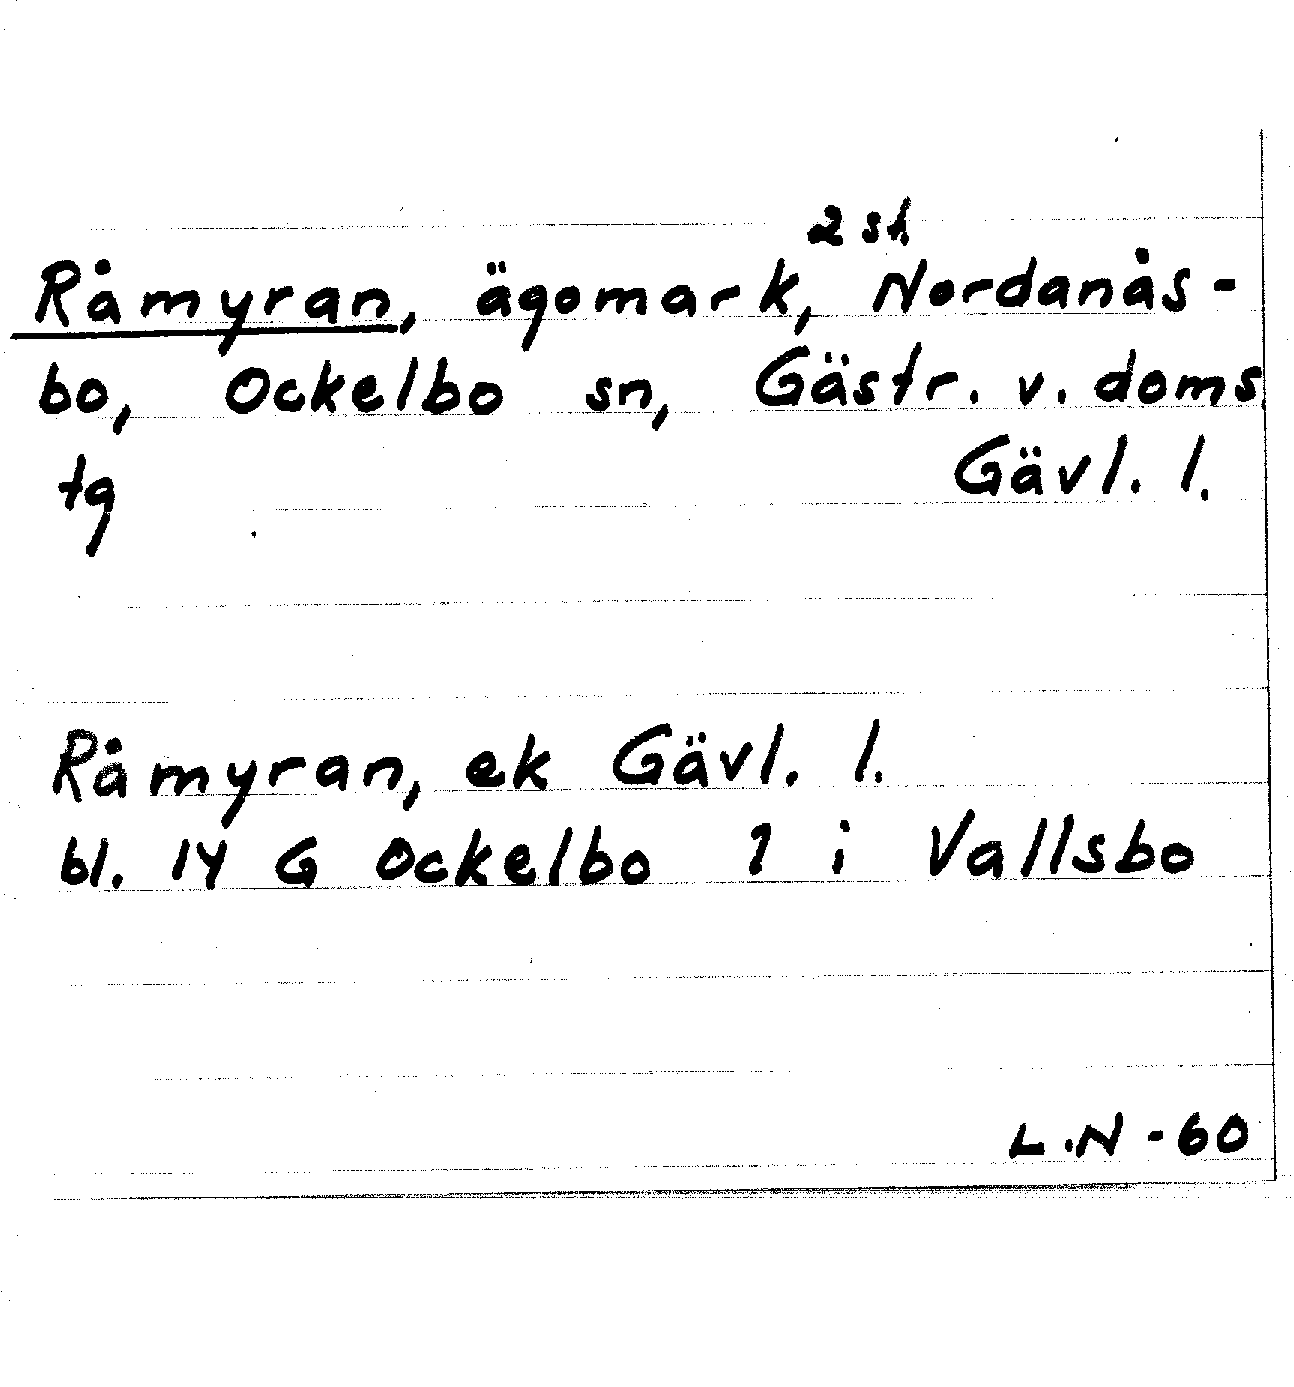 2 sk
Råmyran, ägomark, Nordanås-
bo, Ockelbo sn, Gästr. v. doms
tg Gävl. l.
Råmyran, ek Gävl. l.
bl. 14 G Ockelbo 1 i Vallsbo
L.N - 60